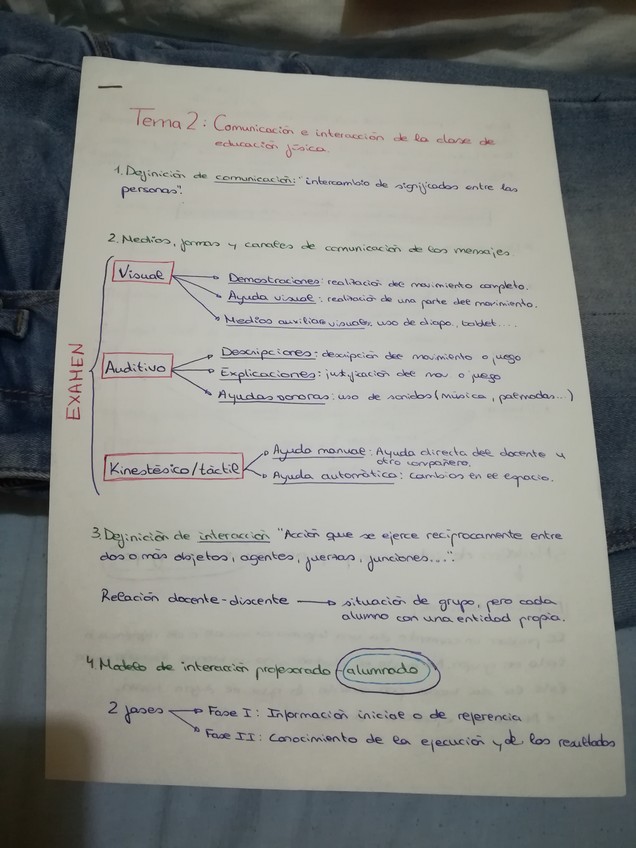 Tema 2: Comunicación e interacción de la clase de
educación física.
1. Definición de comunicación: "intercambio de significados entre las
personas".
2. Medios, formas y canales de comunicación de los mensajes.
EXAMEN
Visual
Demostraciones: realización del movimiento completo.
Ayuda visual: realización de una parte del movimiento.
Medios auxiliares visuales, uso de diapo, tablet....
Auditivo
Descripciones: descripción del movimiento o juego
Explicaciones: justificación del mov o juego
Ayudas sonoras: uso de sonidos (música, palmadas...)
Kinestésico/táctil
Ayuda manual: Ayuda directa del docente u
otro compañero.
Ayuda automática: cambios en el espacio.
3. Definición de interacción "Acción que se ejerce recíprocamente entre
dos o más objetos, agentes, fuerzas, funciones...".
Relación docente-discente → situación de grupo, pero cada
alumno con una entidad propia.
4. Modelo de interacción profesorado - alumnado
2 fases
Fase I: Información inicial o de referencia
Fase II: Conocimiento de la ejecución y de los resultados